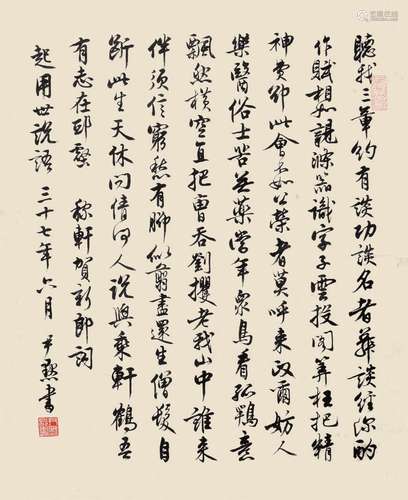 聽我三章約有談功談名者舞談經深酌
作賦相如親滌器識字子雲投閣算枉把精
神費卻此會不如公榮者莫呼來政爾妨人
樂醫俗士苦無藥當年眾鳥看孤鶚意
飄然橫空直把曹吞劉攫老我山中誰來
伴須信窮愁有腳似翦盡還生僧髮自
斷此生天休問倩何人說與乘軒鶴吾
有志在邱壑 稼軒賀新郎詞
起用世說語 三十七年六月 尹默書